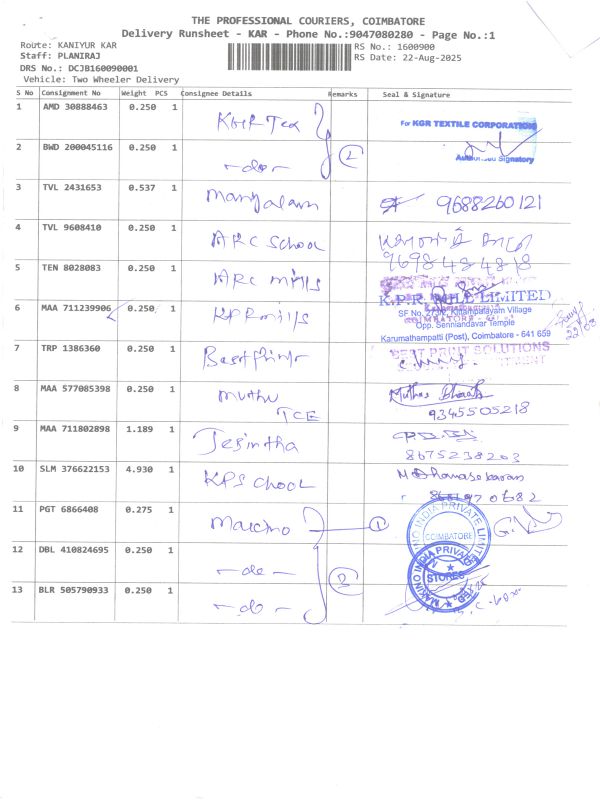 THE PROFESSIONAL COURIERS, COIMBATORE
Delivery Runsheet - KAR - Phone No.:9047080280 - Page No.:1
Route: KANIYUR KAR
RS No.: 1600900
Staff: PLANIRAJ
RS Date: 22-Aug-2025
DRS No.: DCJB160090001
Vehicle: Two Wheeler Delivery
S No Consignment No Weight PCS Consignee Details Remarks Seal & Signature
1 AMD 30888463 0.250 1 KGR Tex For KGR TEXTILE CORPORATION
Authorised Signatory
2 BWD 200045116 0.250 1 -do- 2
3 TVL 2431653 0.537 1 Mangalam 9688260121
4 TVL 9608410 0.250 1 ARC School
9698484818
5 TEN 8028083 0.250 1 ARC mills
6 MAA 711239906 0.250 1 KPR mills K.P.R. MILL LIMITED
SF No. 273/2, Kittampalayam Village
Opp. Senniandavar Temple
Karumathampatti (Post), Coimbatore - 641 659
7 TRP 1386360 0.250 1 BEST PRINT SOLUTIONS
8 MAA 577085398 0.250 1 Muthu TCE
9345505218
9 MAA 711802898 1.189 1 Jesintha
8675238203
10 SLM 376622153 4.930 1 KPSchool M Dhanasekaran
11 PGT 6866408 0.275 1 1 MAKINO INDIA PRIVATE LIMITED
COIMBATORE
12 DBL 410824695 0.250 1 -do- MAKINO INDIA PRIVATE LIMITED
STORES
13 BLR 505790933 0.250 1 -do-